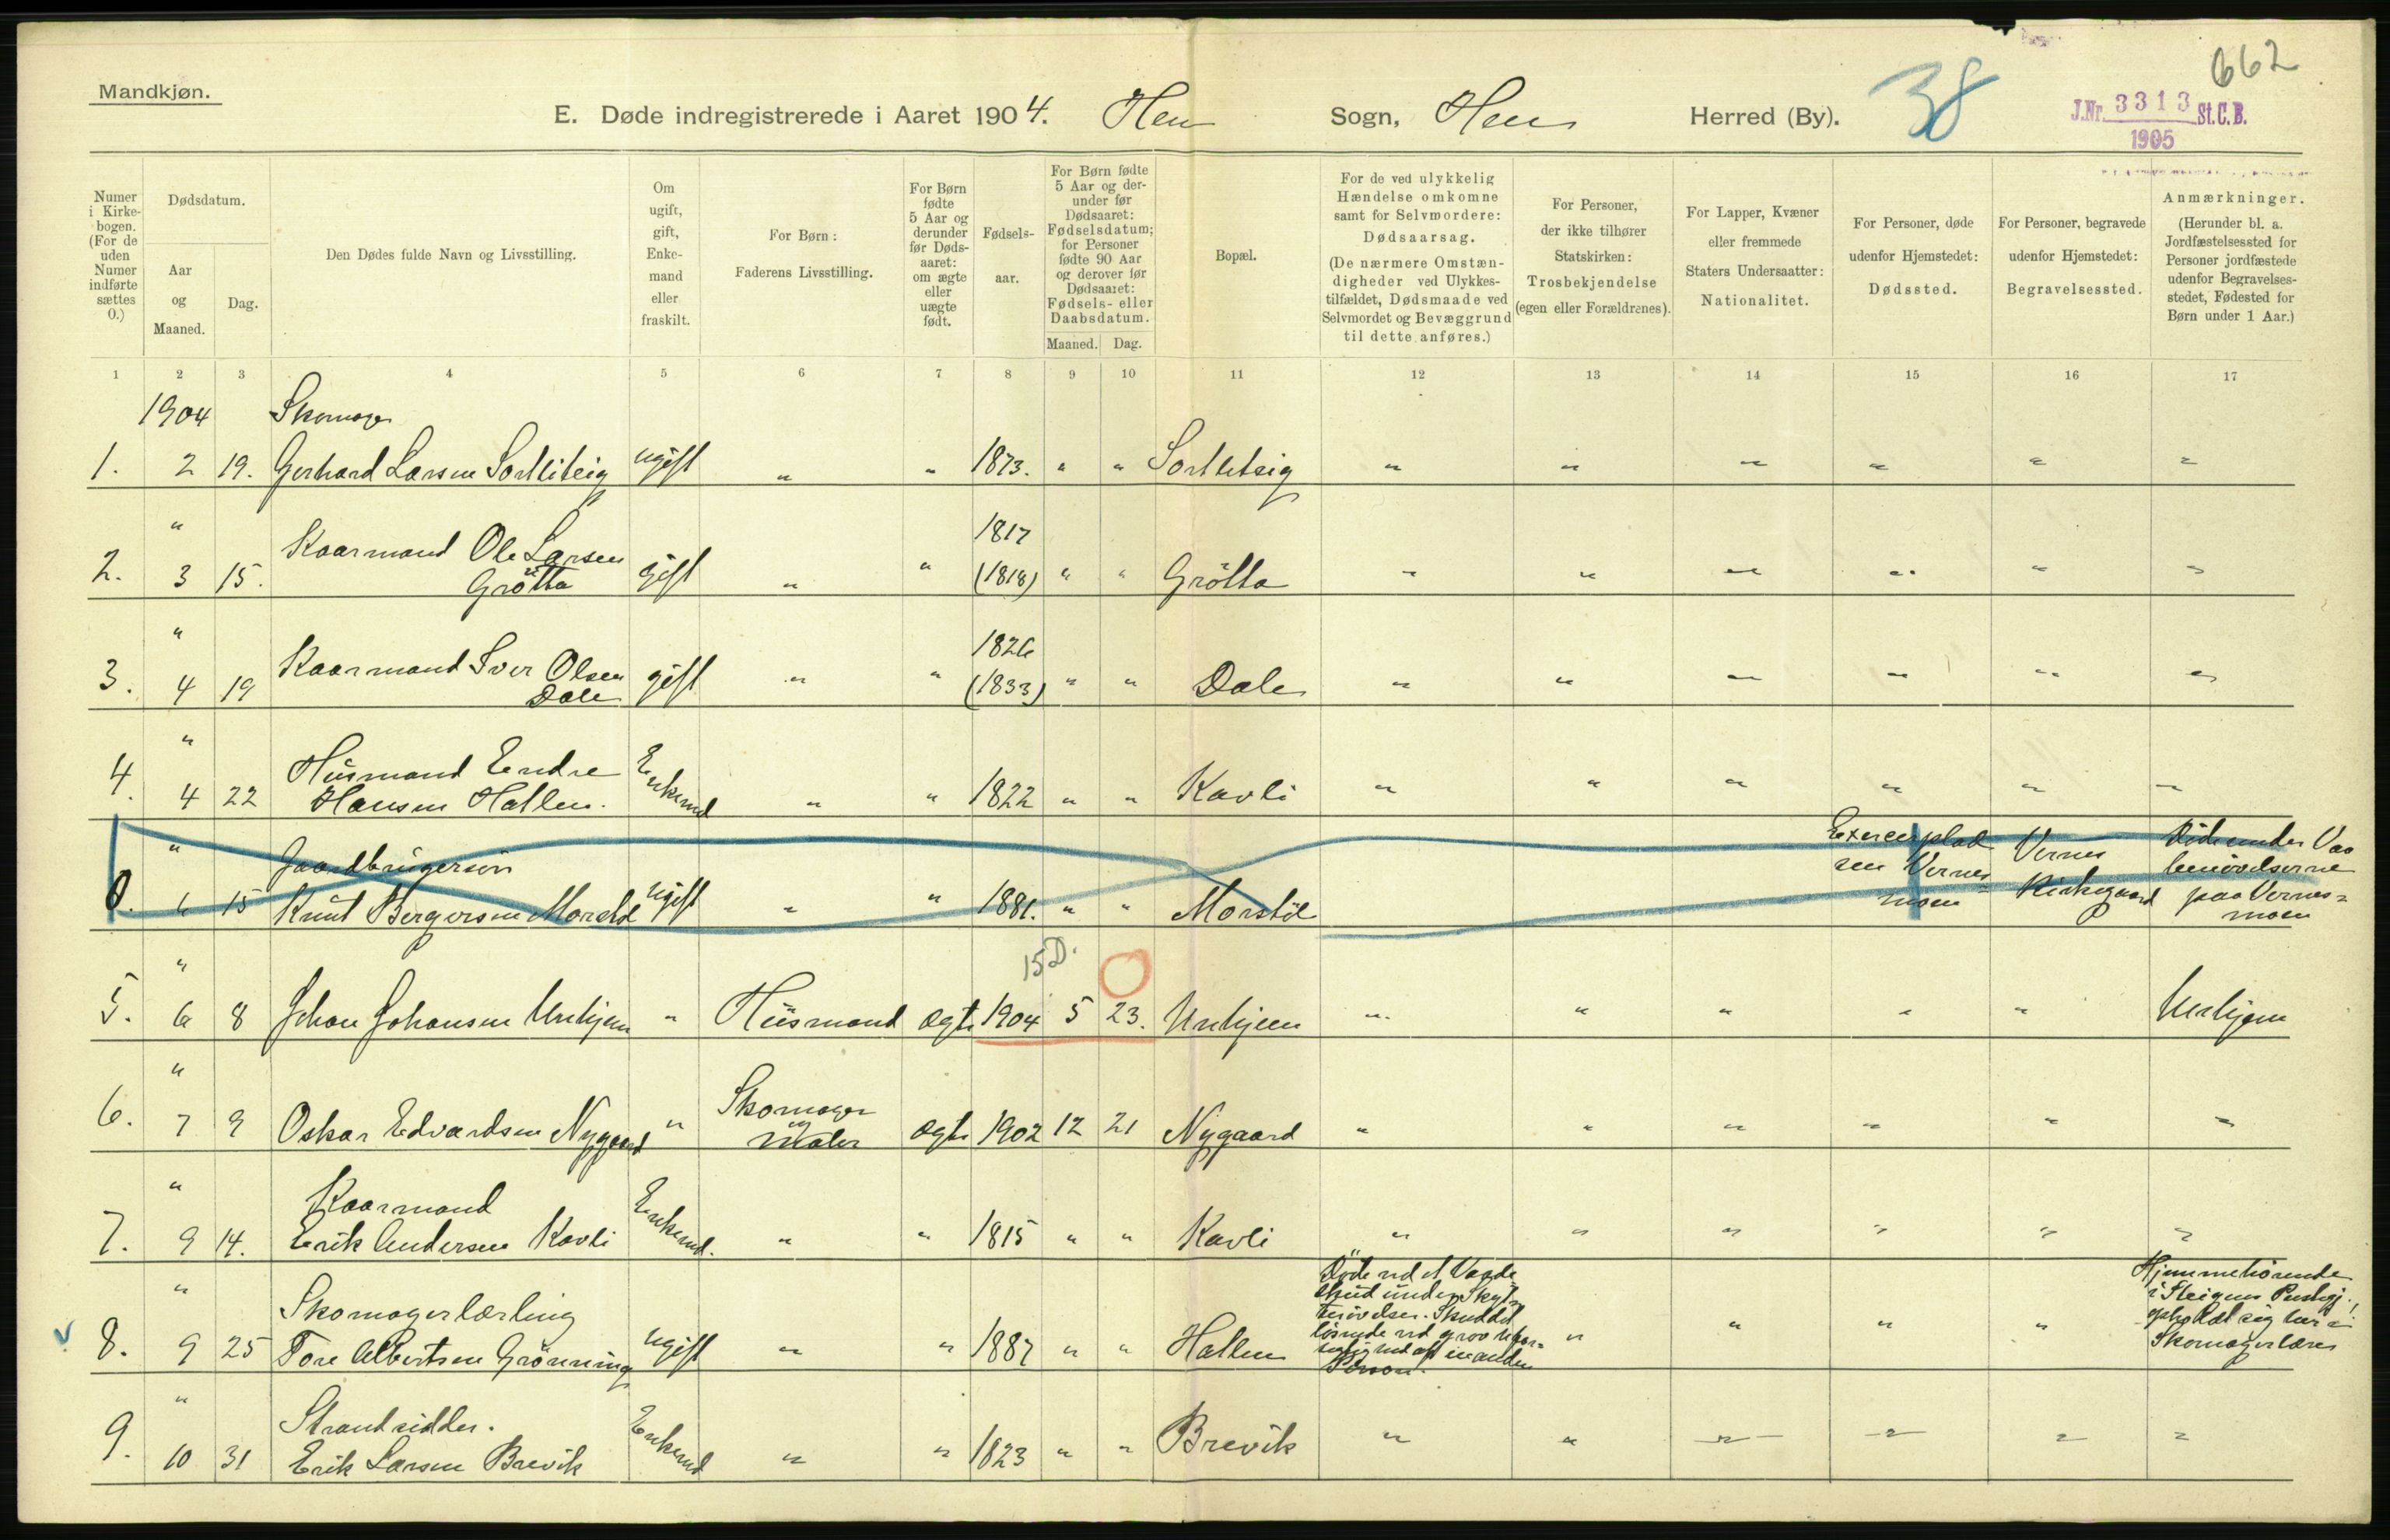 Mandkjøn.
E. Døde indregistrerede i Aaret 1904. Hen Sogn, Hen Herred (By).
38
662
J.Nr. 3313 St.C.B.
1905
Numer i Kirkebogen. (For de uden Numer indførte sættes 0.)
Dødsdatum.
Aar og Maaned.
Dag.
Den Dødes fulde Navn og Livsstilling.
Om ugift, gift, Enkemand eller fraskilt.
For Børn: Faderens Livsstilling.
For Børn fødte 5 Aar og derunder før Dødsaaret: om ægte eller uægte født.
Fødselsaar.
For Børn fødte 5 Aar og derunder før Dødsaaret: Fødselsdatum; for Personer fødte 90 Aar og derover før Dødsaaret: Fødsels- eller Daabsdatum.
Maaned. Dag.
Bopæl.
For de ved ulykkelig Hændelse omkomne samt for Selvmordere: Dødsaarsag. (De nærmere Omstændigheder ved Ulykkestilfældet, Dødsmaade ved Selvmordet og Bevæggrund til dette anføres.)
For Personer, der ikke tilhører Statskirken: Trosbekjendelse (egen eller Forældrenes).
For Lapper, Kvæner eller fremmede Staters Undersaatter: Nationalitet.
For Personer, døde udenfor Hjemstedet: Dødssted.
For Personer, begravede udenfor Hjemstedet: Begravelsessted.
Anmærkninger. (Herunder bl. a. Jordfæstelsessted for Personer jordfæstede udenfor Begravelsesstedet, Fødested for Børn under 1 Aar.)
1 2 3 4 5 6 7 8 9 10 11 12 13 14 15 16 17
1904 Skomager
1. 2 19. Gerhard Larsen Sortliteig ugift " " 1873. " " " " " " " "
" Kaarmand Ole Larsen 1817
2. 3 15. Grötta gift " " (1818) " " Grötta " " " " " "
" 1826
3. 4 19 Kaarmand Iver Olsen Dale gift " " (1833) " " Dale " " " " " "
" Husmand Endre
4. 4 22 Hansen Hallen. Enkemd " " 1822 " " Kavli " " " " " "
" Gaardbrugersön Exercerplad Vernes Döde under Vaa
0. 6 15 Knut Bergersen ugift " " 1881. " " Morstöl sen Vernes= Kirkegaard benövelserne
moen paa Vernes=
moen
15 D.
"
5. 6 8 Johan Johansen Unhjem " Husmand ægte 1904 5 23. Unhjem " " " " " Unhjem
" Skomager
6. 7 9 Oskar Edvardsen Nygaard " og Maler ægte 1902 12 21 Nygaard " " " " " "
" Kaarmand
7. 9 14. Erik Andersen Kavli Enkemd. " " 1815 " " Kavli " " " " " "
" Skomagerlærling Döde ved et Vaade= Hjemmehörende
skud under Skyt=
terövelser. Skuddet opholdt sig her i
8. 9 25 Tore Albertsen Grönning ugift " " 1887 " " Hallen lösnede ved grov " " " " Skomagerlære
af en anden
Person.
" Strandsidder.
9. 10 31 Erik Larsen Brevik Enkemd " " 1823 " " Brevik " " " " " "